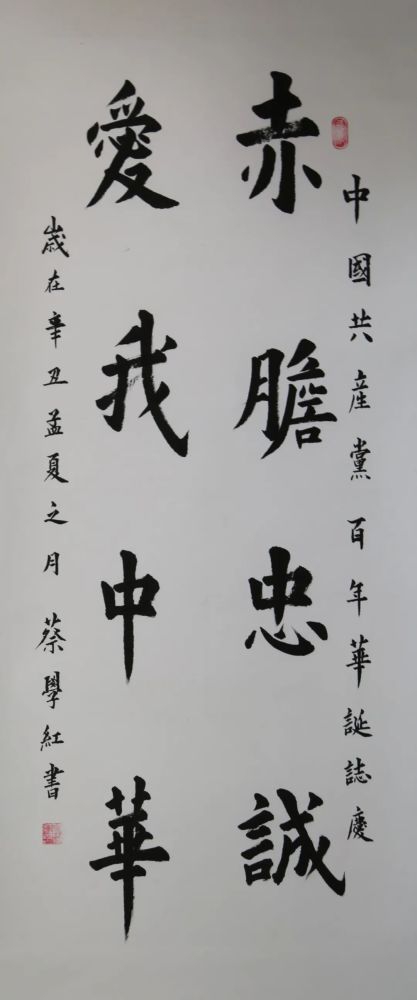 中國共產黨百年華誕誌慶
赤膽忠誠
愛我中華
歲在辛丑孟夏之月 蔡學紅書